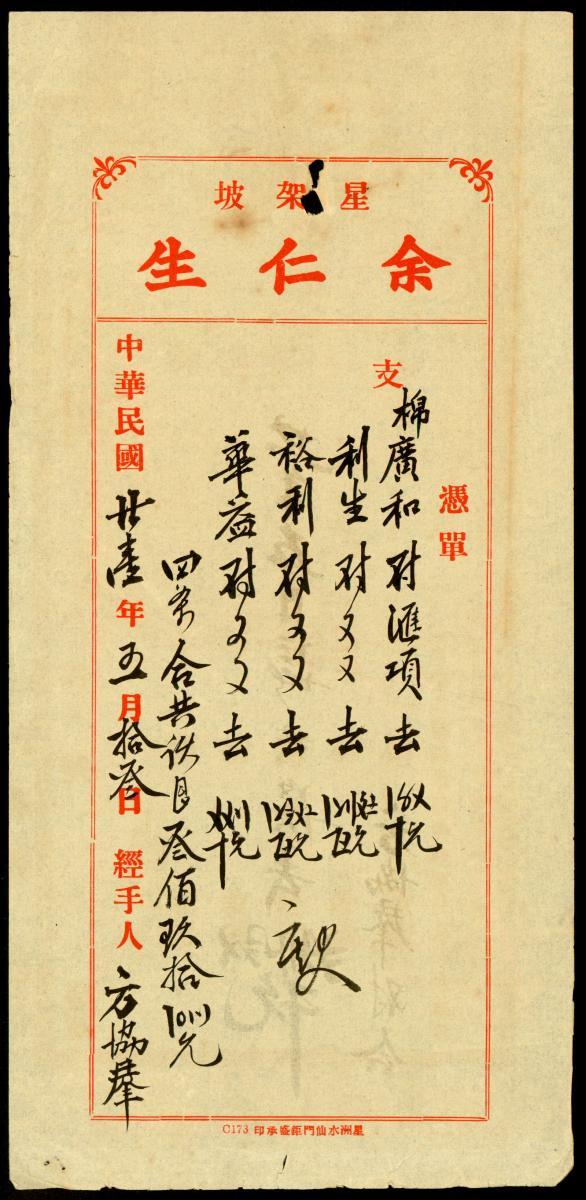 星架坡
余仁生
憑單
支
棉廣和對滙項去
利生對又又去
裕利對又又去
華益對又又去
四条合共 叁佰玖拾 元
中華民國廿壹年五月拾叁日 經手人 方協群
星洲水仙門鉅盛承印 C173